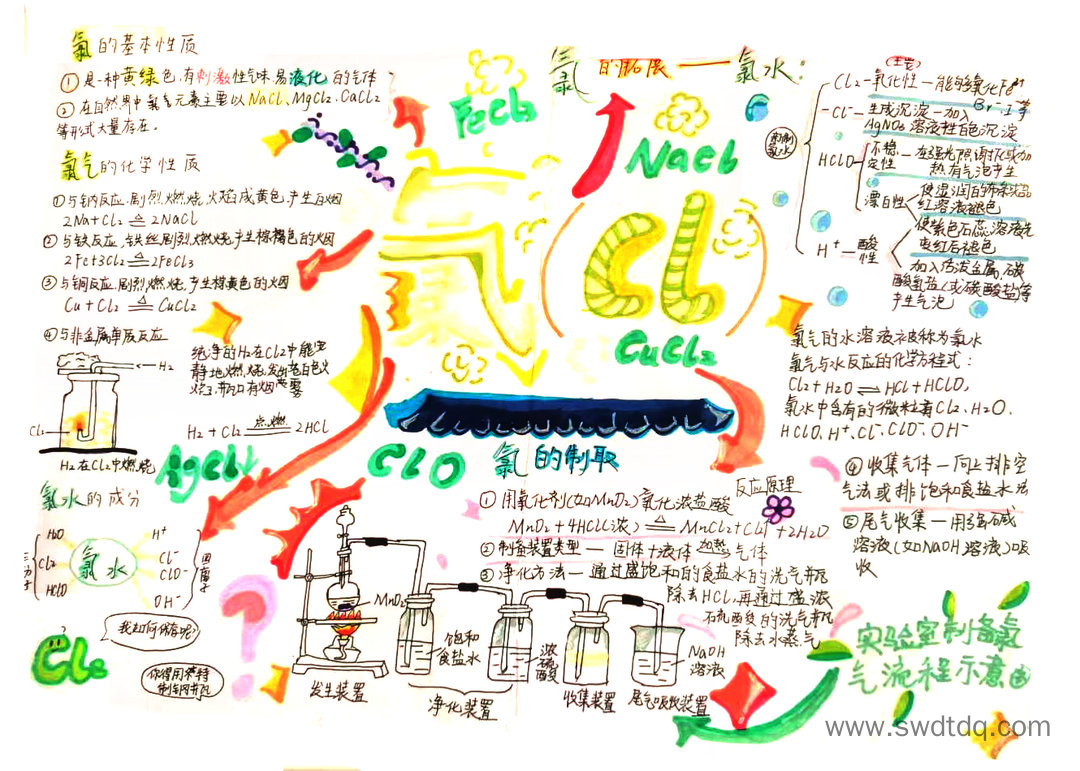 氯的基本性质
① 是一种黄绿色.有刺激性气味.易液化的气体
② 在自然界中氯气元素主要以NaCl、MgCl2、CaCl2
等形式大量存在。
氯气的化学性质
①与钠反应.剧烈.燃烧.火焰成黄色.产生白烟
2Na+Cl2 △ 2NaCl
② 与铁反应,铁丝剧烈燃烧.产生棕褐色的烟
2Fe+3Cl2 △ 2FeCl3
③ 与铜反应.剧烈燃烧,产生棕黄色的烟
Cu + Cl2 △ CuCl2
④与非金属单质反应
H2
Cl2
H2在Cl2中燃烧
纯净的H2在Cl2中能安
静地燃烧,发出苍白色火
H2 + Cl2 点燃 2HCl
氯水的成分
H2O
Cl2
HClO
氯水
H+
Cl-
ClO-
OH-
四离子
我如何保存呢?
Cl2
FeCl3
NaCl
Cl
CuCl2
AgCl↓
ClO
氯的制取
反应原理
① 用氧化剂(如MnO2)氧化浓盐酸
MnO2 + 4HCl(浓) △ MnCl2+Cl2↑+2H2O
② 制备装置类型 — 固体+液体 加热 气体
③ 净化方法 — 通过盛饱和的食盐水的洗气瓶
除去HCl,再通过盛浓
硫酸的洗气瓶
除去水蒸气
MnO2
饱和
食盐水
浓
硫
酸
NaOH
溶液
发生装置
净化装置
收集装置
尾气吸收装置
氯水:
新制
氯水
Cl2—氧化性—能够氧化Fe2+
Br-、I-等
Cl-—生成沉淀—加入
AgNO3溶液性白色沉淀
HClO
不稳
定性
热有气泡产生
漂白性
使湿润的布条或品
红溶液褪色
使紫色石蕊溶液先
变红后褪色
H+—酸
性
加入活泼金属.碳
酸氢盐(或碳酸盐)等
产生气泡
氯气的水溶液被称为氯水
氯气与水反应的化学方程式:
Cl2+H2O ⇌ HCl+HClO,
氯水中含有的微粒有Cl2、H2O、
HClO、H+、Cl-、ClO-、OH-
④ 收集气体—向上排空
气法或排饱和食盐水法
⑤ 尾气收集—用强碱
溶液(如NaOH溶液)吸
收
实验室制备氯
气流程示意图
www.swdtdq.com